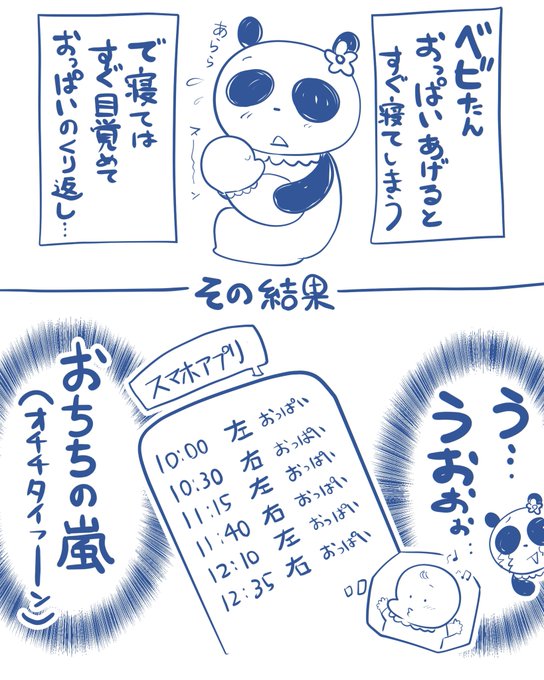 ベビたん
おっぱいあげると
すぐ寝てしまう
あらら
スーーーン
で寝ては
すぐ目覚めて
おっぱいのくり返し…
その結果
う…
うおぉぉ…
スマホアプリ
10:00 左 おっぱい
10:30 右 おっぱい
11:15 左 おっぱい
11:40 右 おっぱい
12:10 左 おっぱい
12:35 右 おっぱい
おちちの嵐
(オチチタイフーーン)